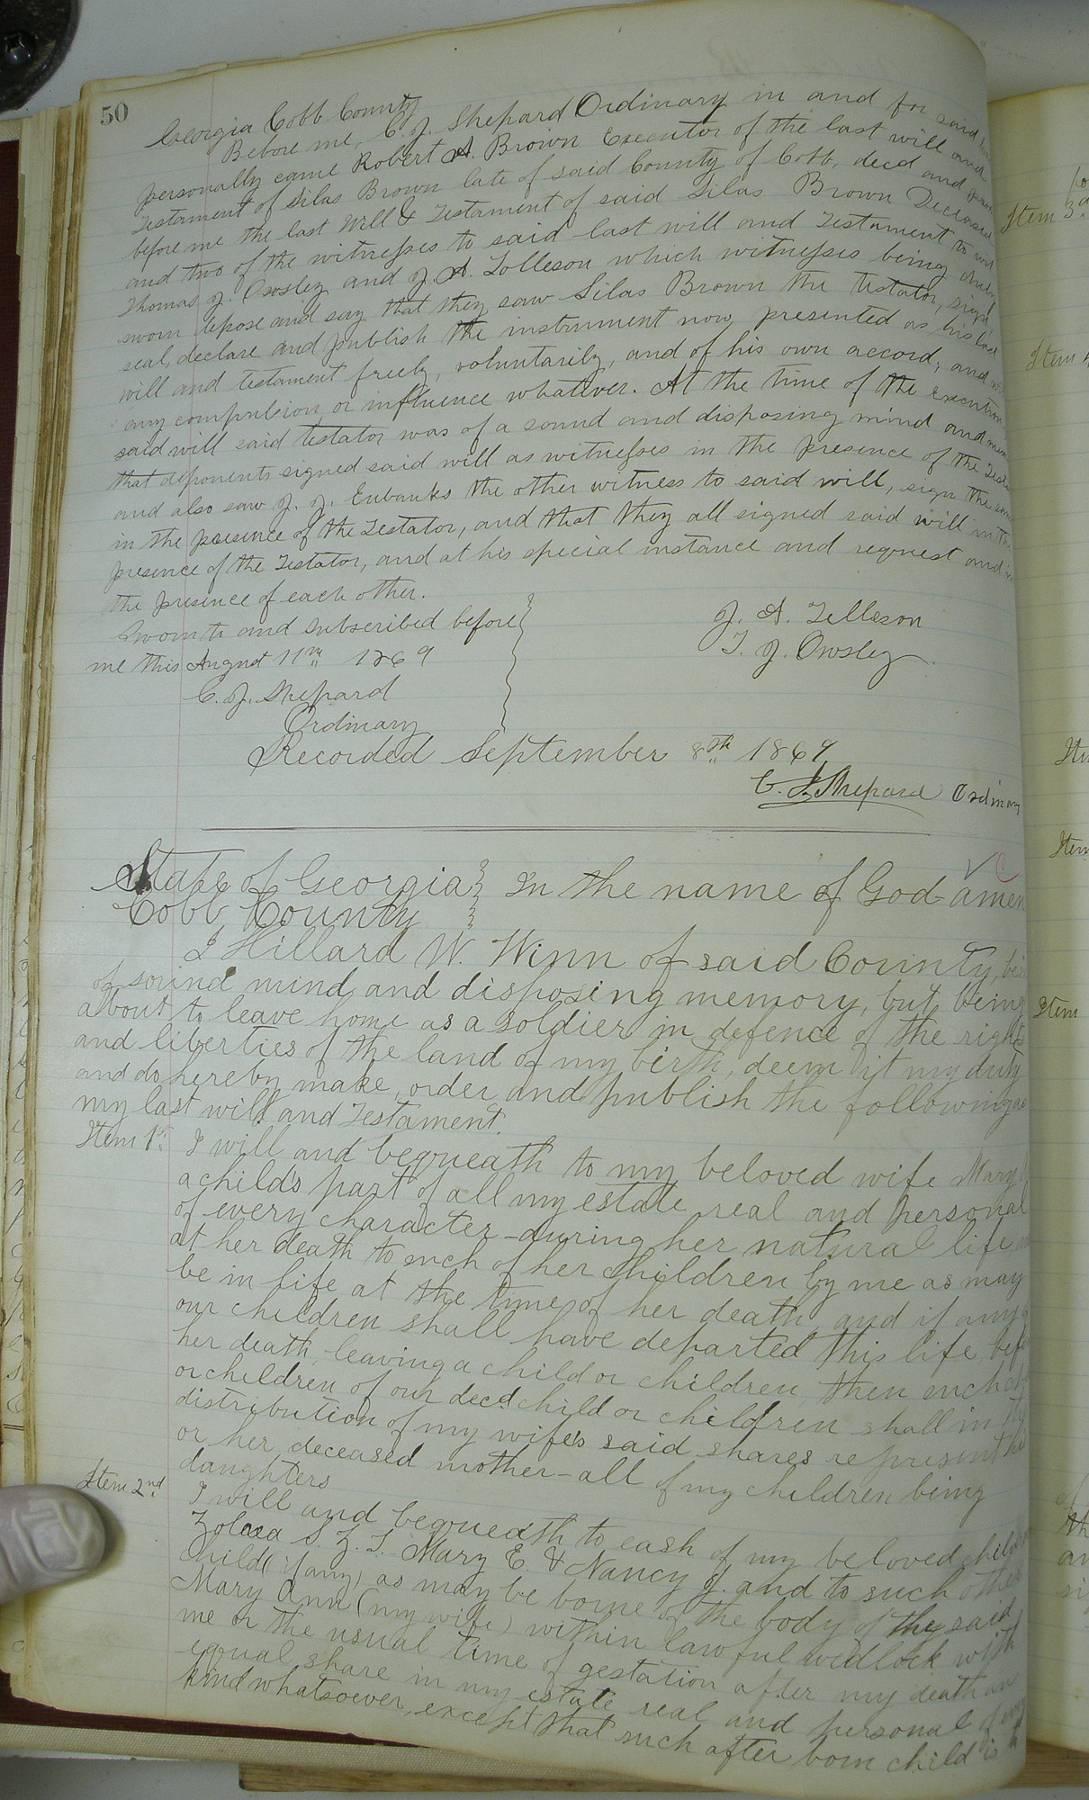 50
Georgia Cobb County
Before me, C. J. Shepard Ordinary in and for said
personally came Robert A. Brown Executor of the last will and
Testament of Silas Brown late of said County of Cobb, decd and
before me the last Will & Testament of said Silas Brown Deceased
and two of the witnesses to said last will and Testament to wit
Thomas J. Owsley and J. A. Tolleson which witnesses being duly
sworn depose and say that they saw Silas Brown the Testator, sign
seal, declare and publish the instrument now presented as his last
will and testament freely, voluntarily, and of his own accord, and
any compulsion or influence whatever. At the time of the execution
said will said testator was of a sound and disposing mind and
that deponents signed said will as witnesses in the presence of the
and also saw J. J. Eubanks the other witness to said will, sign the
in the presence of the Testator, and that they all signed said will in the
presence of the Testator, and at his special instance and request and in
the presence of each other.
Sworn to and subscribed before
me this August 11th 1869
C. J. Shepard
Ordinary
J. A. Tolleson
T. J. Owsley
Recorded September 8th 1869
C. J. Shepard Ordinary
State of Georgia In the name of God amen
Cobb County
I Hillard W. Winn of said County,
of sound mind and disposing memory, but being
about to leave home as a soldier in defence of the rights
and liberties of the land of my birth, deem it my duty
and do hereby make, order and publish the following as
my last will and Testament.
Item 1st. I will and bequeath to my beloved wife Mary
a child's part of all my estate real and personal
of every character during her natural life
at her death to such of her children by me as may
be in life at the time of her death, and if any
our children shall have departed this life
her death, leaving a child or children, then such
or children of our decd child or children shall in
distribution of my wife's said shares represent
or her deceased mother - all of my children being
daughters
Item 2nd. I will and bequeath to each of my beloved
S. Z. T. Mary E. & Nancy J. and to such other
child (if any) as may be borne of the body of the said
Mary Ann (my wife) within lawful wedlock with
me or the usual time of gestation after my death an
equal share in my estate real and personal of
kind whatsoever, except that such after born child is
Item 3d
Item 4
Item
Item